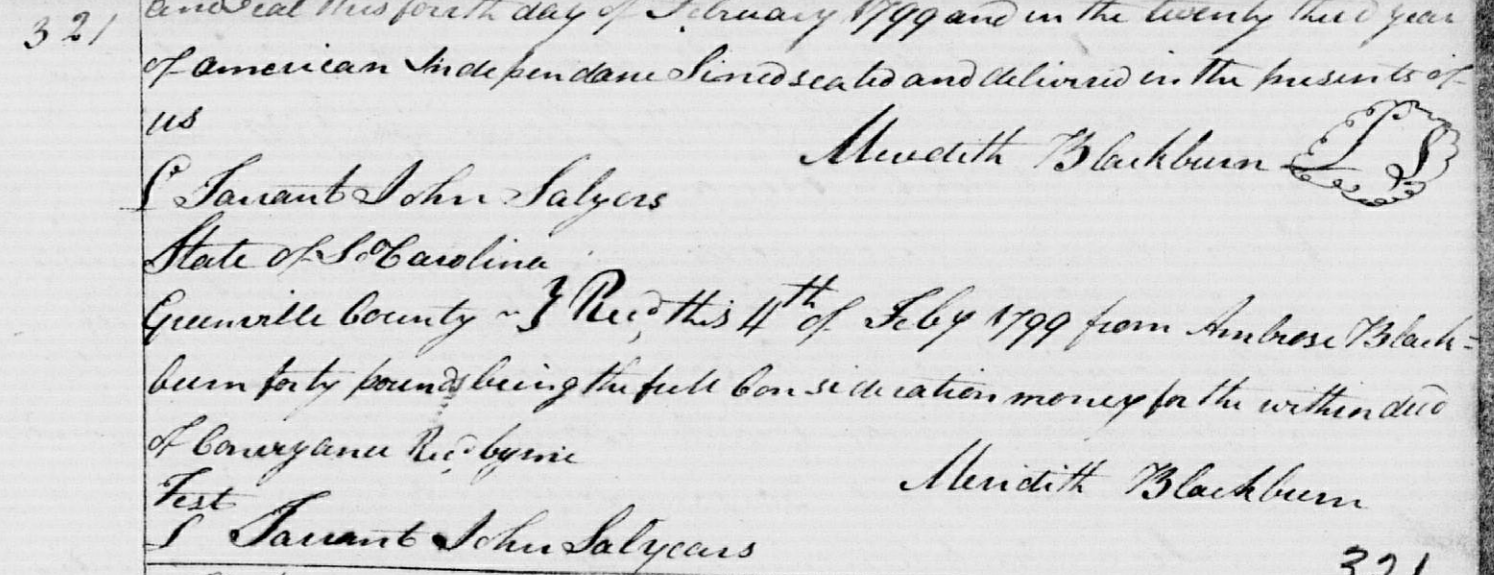 321
and Seal this fourth day of February 1799 and in the twenty third year
of american Independane Sined sealed and delivered in the presents of
us
Meredith Blackburn L S
L Tarrant John Salyers
State of So Carolina
Greenville County } Recd this 4th of Feby 1799 from Ambrose Black=
burn forty pounds being the full Consideration money for the within deed
of Conveyance Recd by me
Meridith Blackburn
Test
L Tarrant John Salyears
321